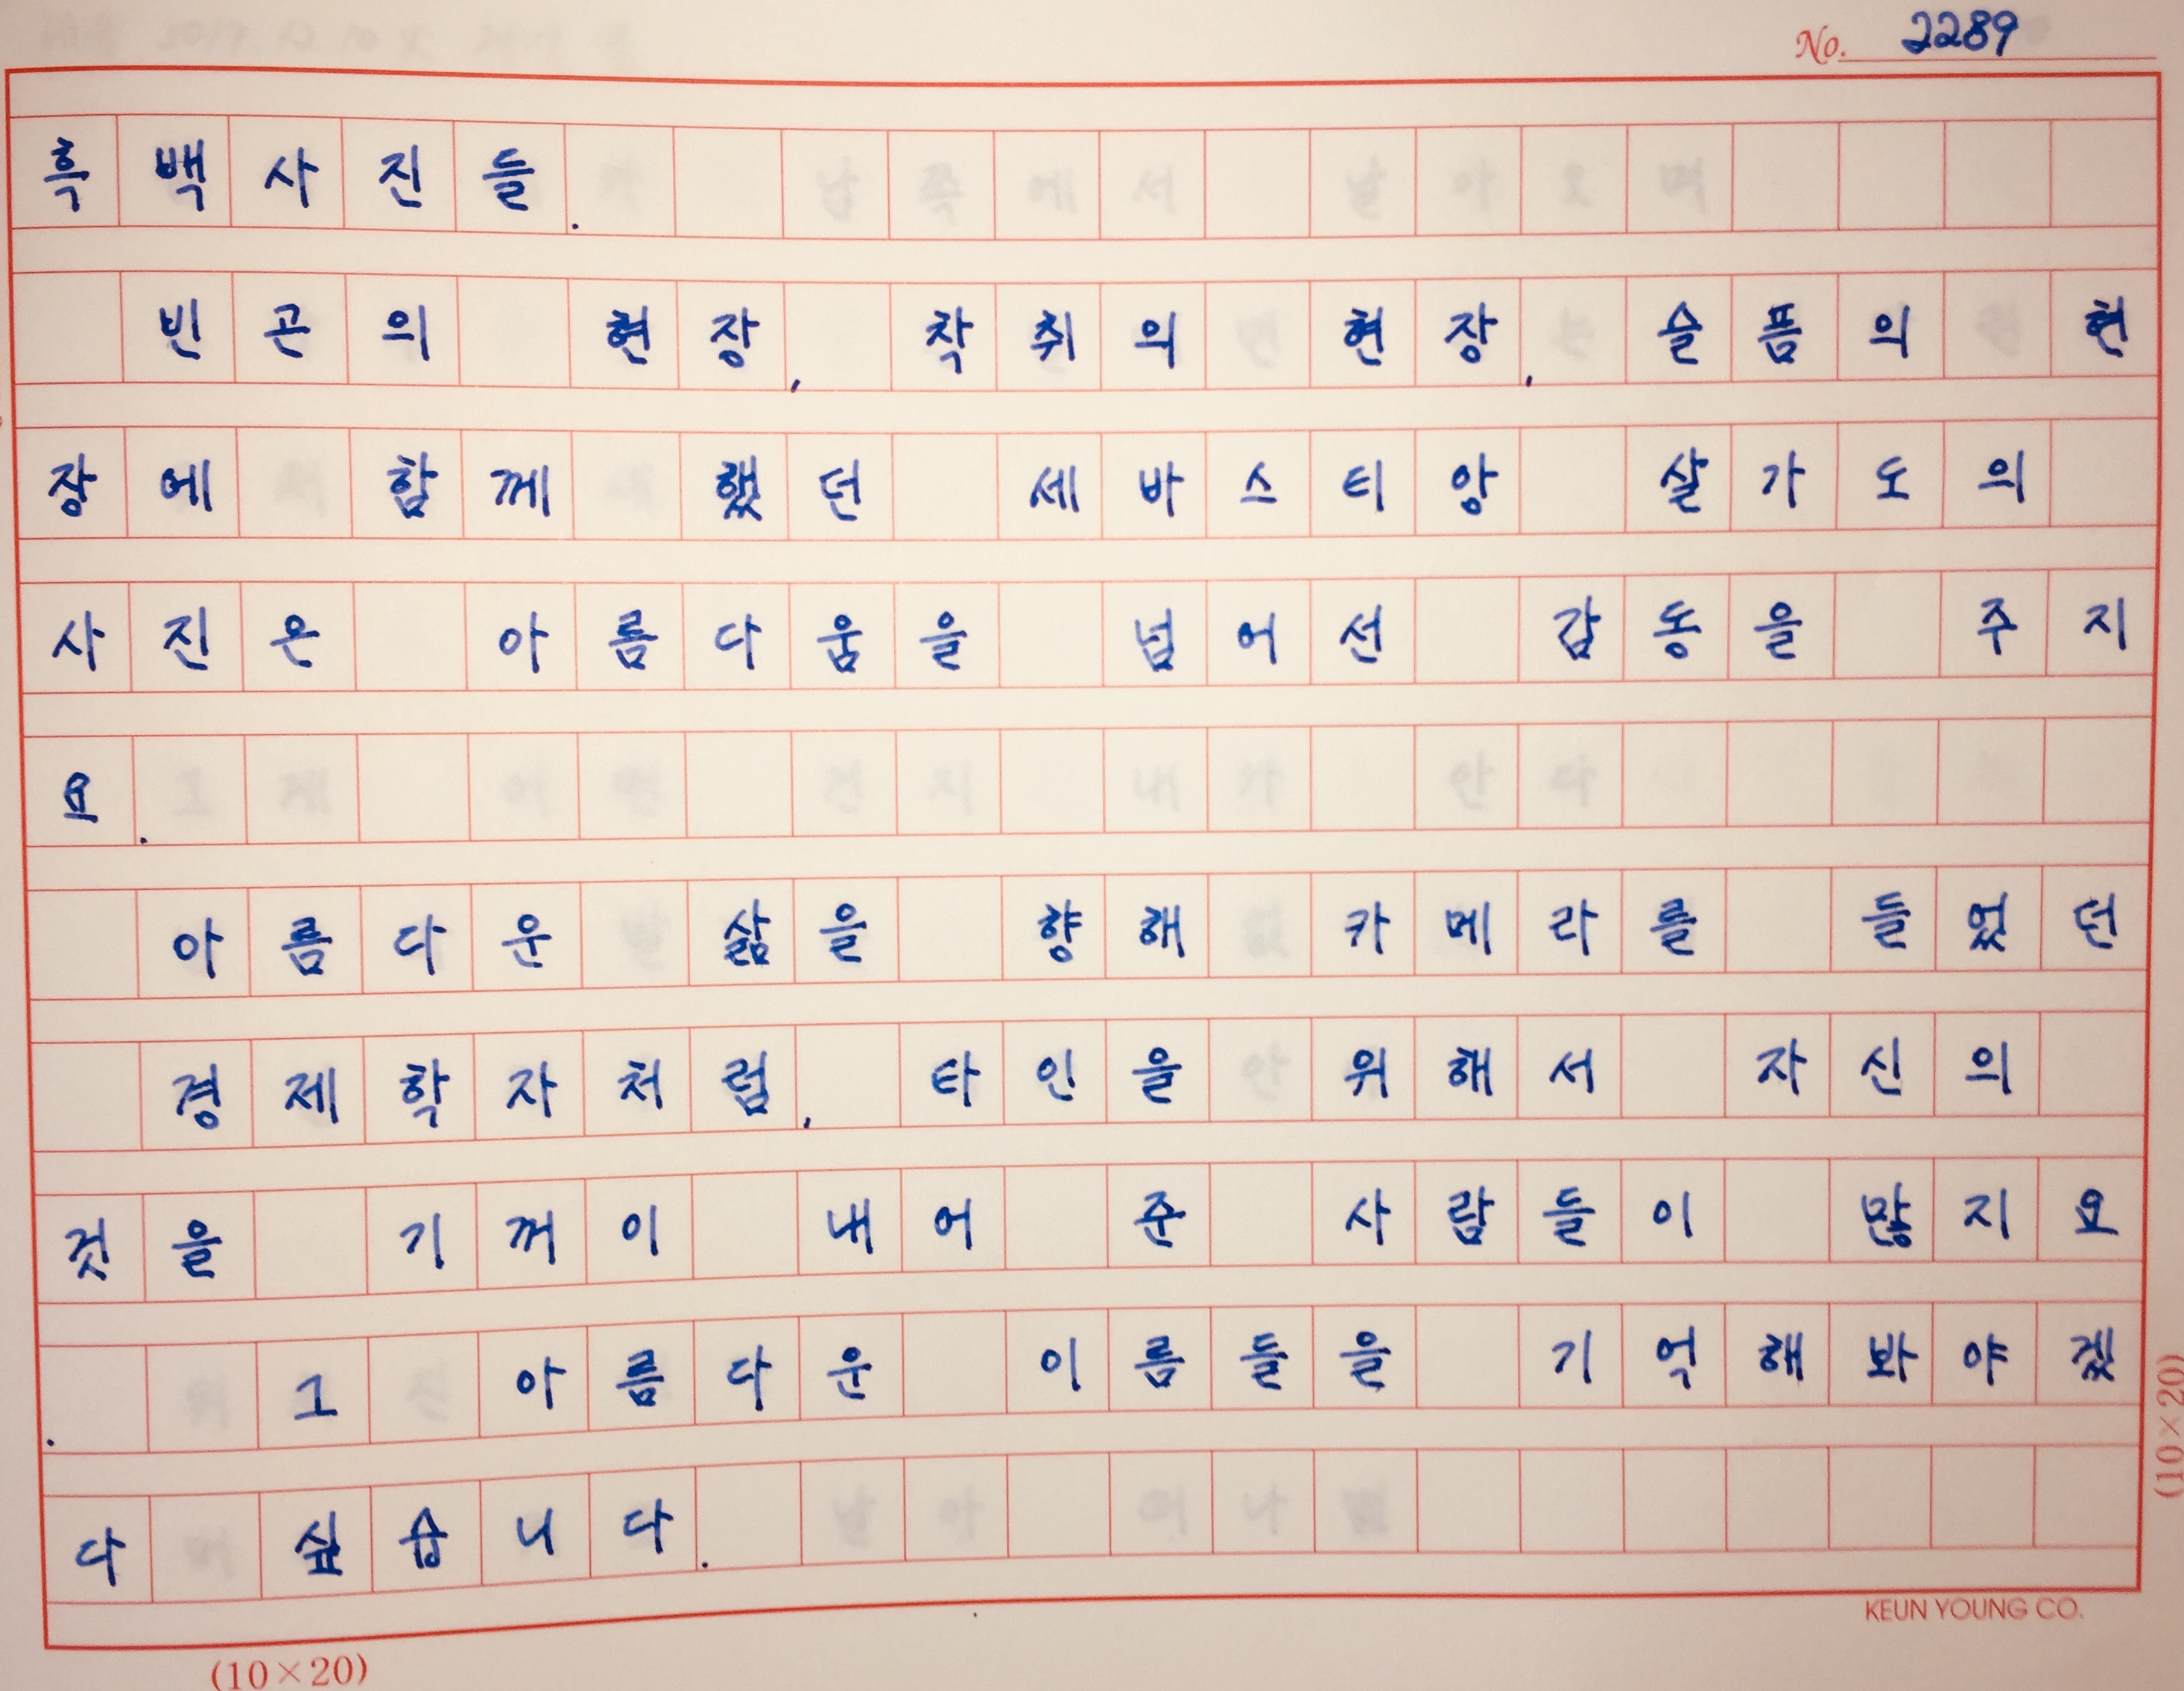 No. 2289
흑백사진들.
빈곤의 현장, 착취의 현장, 슬픔의 현
장에 함께 했던 세바스티앙 살가도의
사진은 아름다움을 넘어선 감동을 주지
요.
아름다운 삶을 향해 카메라를 들었던
경제학자처럼, 타인을 위해서 자신의
것을 기꺼이 내어 준 사람들이 많지요
. 그 아름다운 이름들을 기억해봐야겠
다 싶습니다.
KEUN YOUNG CO.
(10×20)
(10×20)